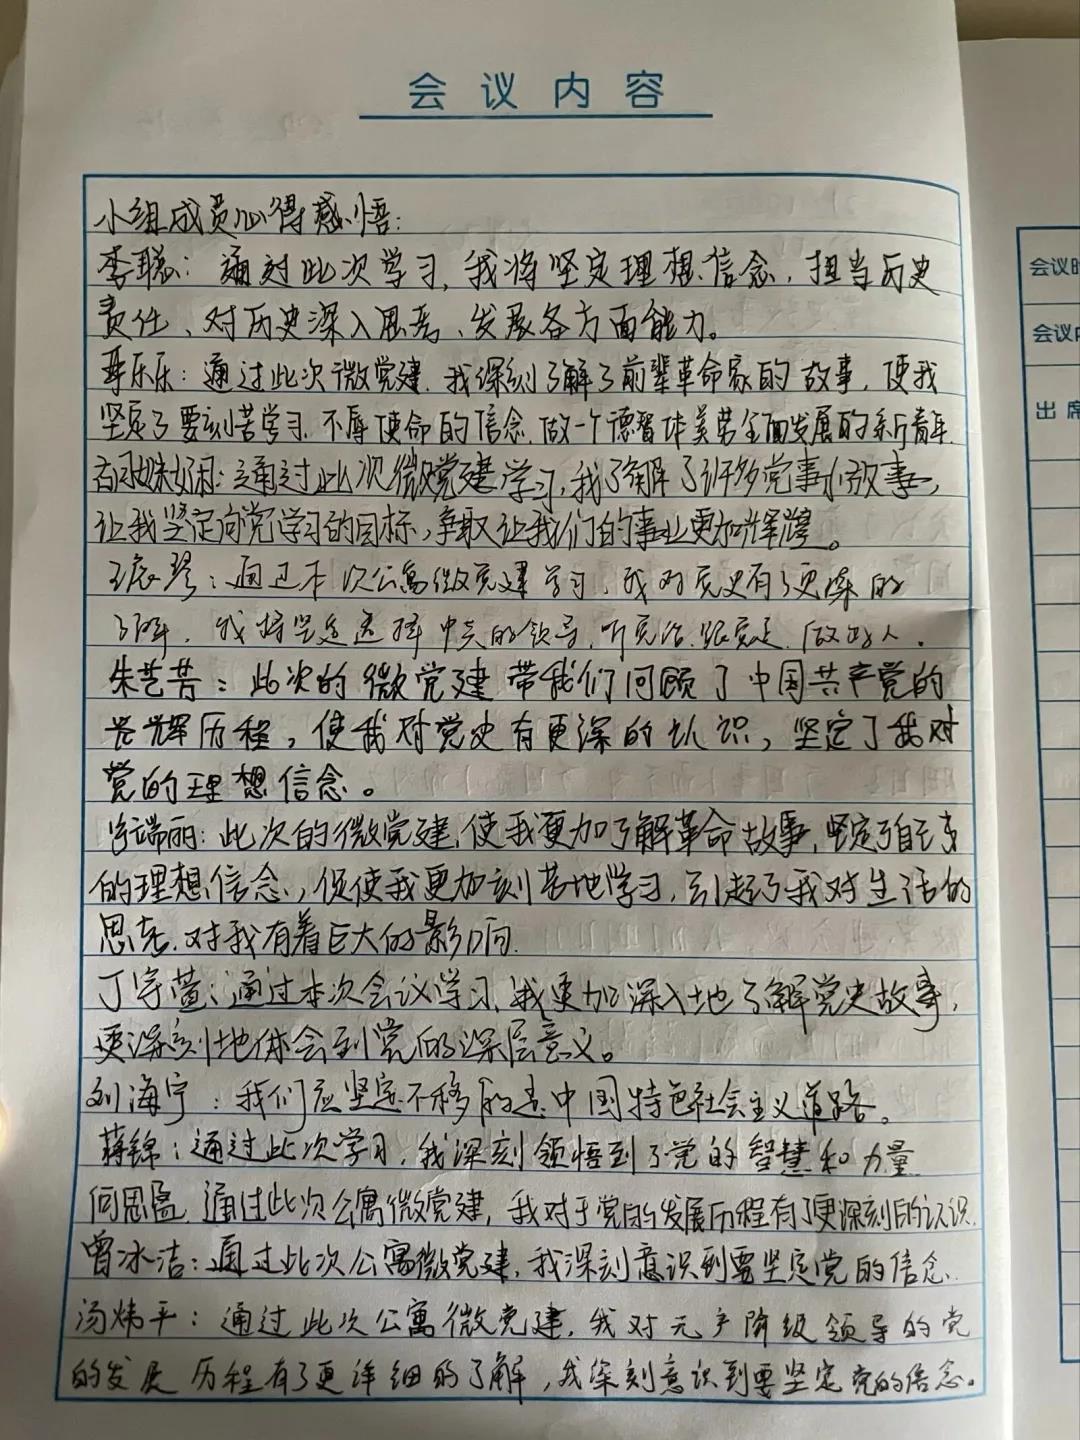 会议内容
小组成员心得感悟:
李聪: 通过此次学习,我将坚定理想信念,担当历史
责任、对历史深入思考、发展各方面能力。
乐乐: 通过此次微党建,我深刻了解了前辈革命家的故事,使我
坚定了要刻苦学习、不辱使命的信念,做一个德智体美劳全面发展的新青年.
通过此次微党建学习,我了解了许多党事小故事,
让我坚定向党学习的目标,争取让我们的事业更加辉煌。
通过本次公寓微党建学习,我对党史有了更深的
了解,我将坚定选择中共的领导,听党话,跟党走,做好人.
朱艺芳: 此次的微党建带我们回顾了中国共产党的
光辉历程,使我对党史有更深的认识,坚定了我对
党的理想信念。
端丽: 此次的微党建,使我更加了解革命故事,坚定了自己
的理想信念,促使我更加刻苦地学习,引起了我对生活的
思考,对我有着巨大的影响.
丁宇萱: 通过本次会议学习,我更加深入地了解党史故事,
更深刻地体会到党的深层意义。
刘海宁: 我们应坚定不移的走中国特色社会主义道路。
蒋锦: 通过此次学习,我深刻领悟到了党的智慧和力量
何思 通过此次公寓微党建,我对于党的发展历程有了更深刻的认识.
曾冰洁: 通过此次公寓微党建,我深刻意识到要坚定党的信念.
汤炜平: 通过此次公寓微党建,我对无产阶级领导的党
的发展历程有了更详细的了解,我深刻意识到要坚定党的信念。
会议
会议
出席